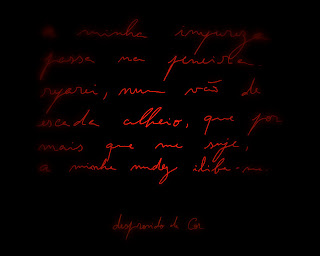 a minha impureza
passa na peneira.
reparei, num vão de
escada alheio, que por
mais que me suje,
a minha nudez iliba-me.
desprovido de Cor